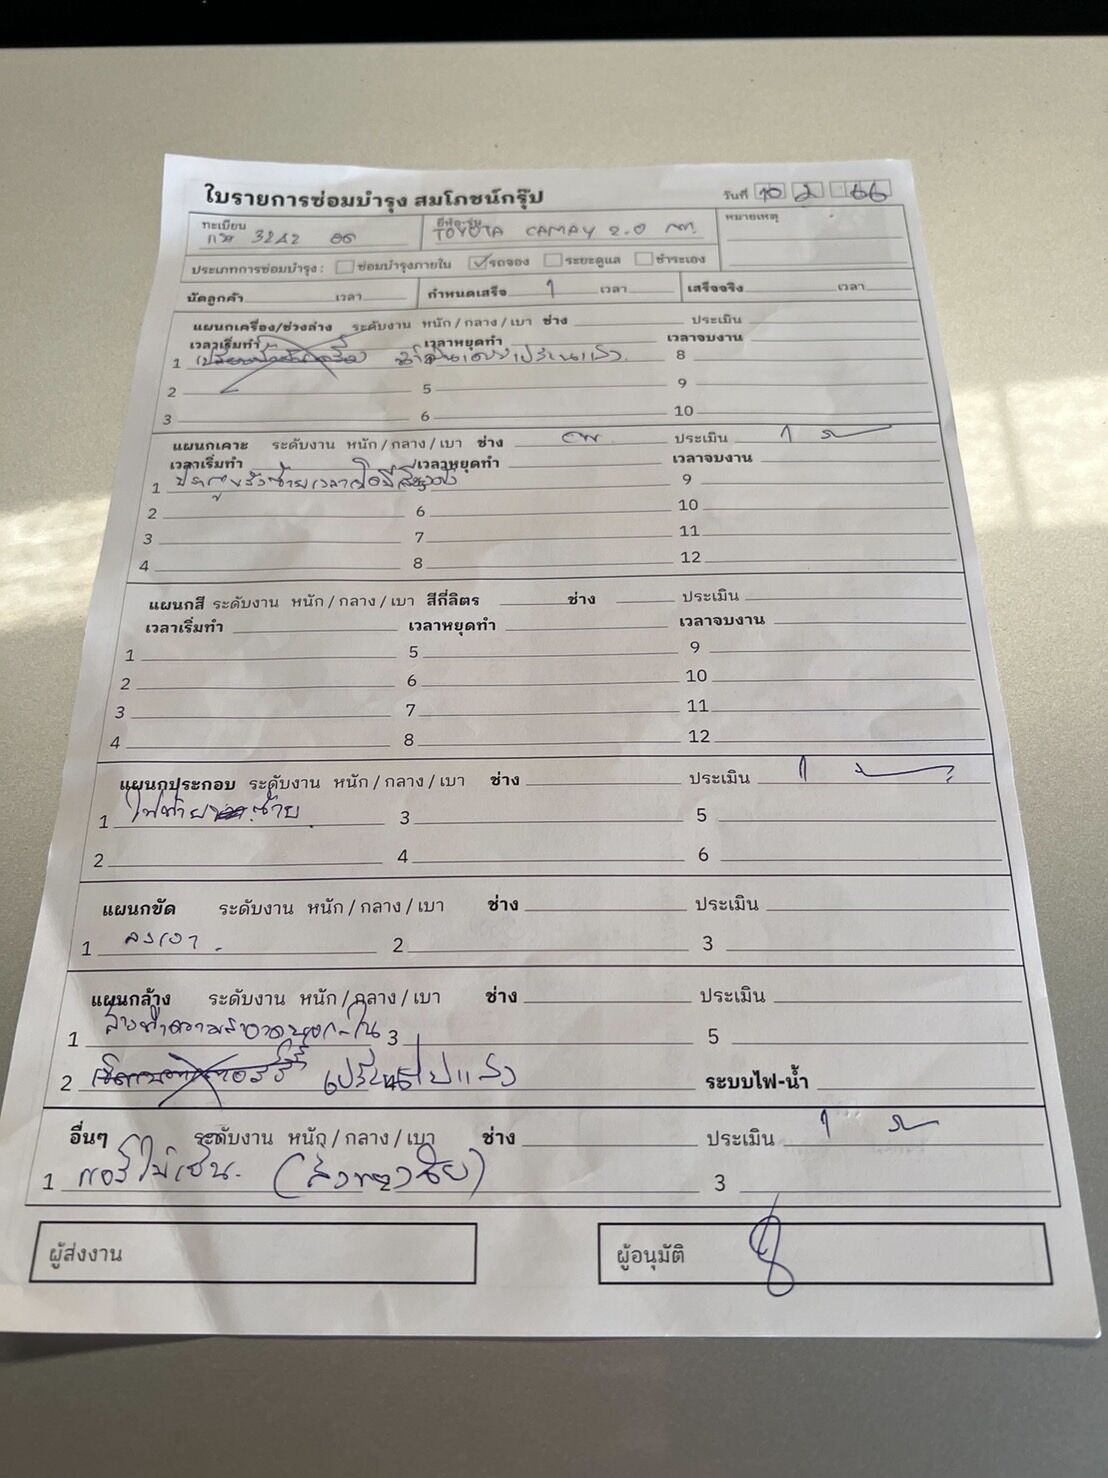 ใบรายการซ่อมบำรุง สมโภชน์กรุ๊ป
วันที่ 10 2 66
ทะเบียน
3242
ยี่ห้อ-รุ่น
TOYOTA CAMAY 2.0
หมายเหตุ
ประเภทการซ่อมบำรุง : ซ่อมบำรุงภายใน รถจอง ระยะดูแล ชำระเอง
นัดลูกค้า เวลา กำหนดเสร็จ 1 เวลา เสร็จจริง เวลา
แผนกเครื่อง/ช่วงล่าง ระดับงาน หนัก / กลาง / เบา ช่าง ประเมิน
เวลาเริ่มทำ เวลาหยุดทำ เวลาจบงาน
1 8
2 5 9
3 6 10
แผนกเคาะ ระดับงาน หนัก / กลาง / เบา ช่าง ประเมิน 1
เวลาเริ่มทำ เวลาหยุดทำ เวลาจบงาน
1 ประตูหลังซ้ายเวลาเปิดมีเสียงดัง 9
2 6 10
3 7 11
4 8 12
แผนกสี ระดับงาน หนัก / กลาง / เบา สีกี่ลิตร ช่าง ประเมิน
เวลาเริ่มทำ เวลาหยุดทำ เวลาจบงาน
1 5 9
2 6 10
3 7 11
4 8 12
แผนกประกอบ ระดับงาน หนัก / กลาง / เบา ช่าง ประเมิน 1
1 ไฟท้าย ซ้าย 3 5
2 4 6
แผนกขัด ระดับงาน หนัก / กลาง / เบา ช่าง ประเมิน
1 ลงเงา 2 3
แผนกล้าง ระดับงาน หนัก / กลาง / เบา ช่าง ประเมิน
1 ล้างทำความสะอาดนอก-ใน 3 5
2 เปลี่ยนไปแล้ว ระบบไฟ-น้ำ
อื่นๆ ระดับงาน หนัก / กลาง / เบา ช่าง ประเมิน 1
1 แอร์ไม่เย็น. 3
ผู้ส่งงาน
ผู้อนุมัติ